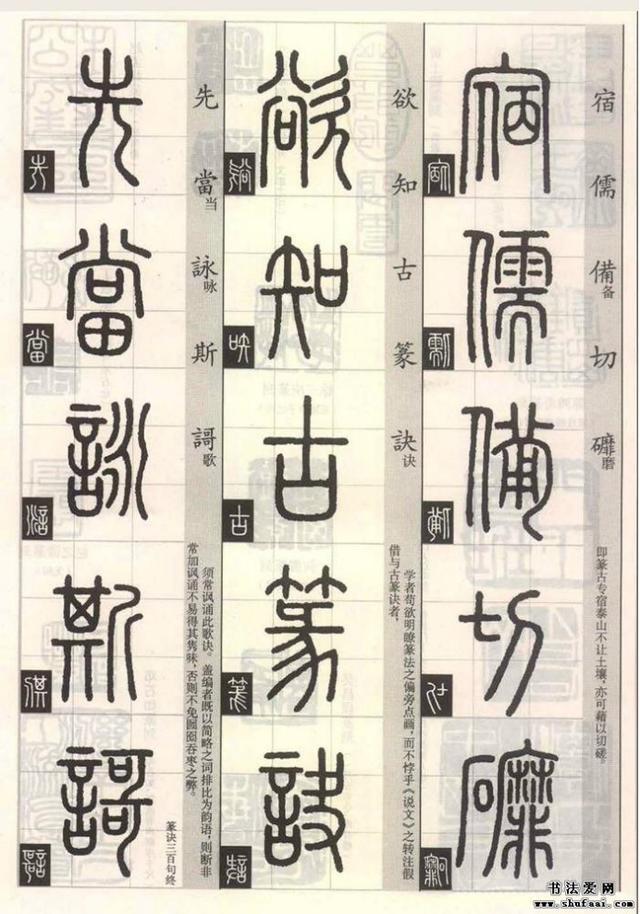 宿儒備切礳
宿
儒
備备
切
礳磨
即篆古专宿泰山不让土壤，亦可藉以切磋。
欲知古篆訣
欲
知
古
篆
訣诀
学者苟欲明瞭篆法之偏旁点画，而不悖乎《说文》之转注假
借与古篆诀者，
先當詠斯謌
先
當当
詠咏
斯
謌歌
须常讽诵此歌诀。盖编者既以简略之词排比为韵语，则断非
常加讽诵不易得其隽味，否则不免囫囵吞枣之弊。
篆诀三百句终
书法爱网
www.shufaai.com